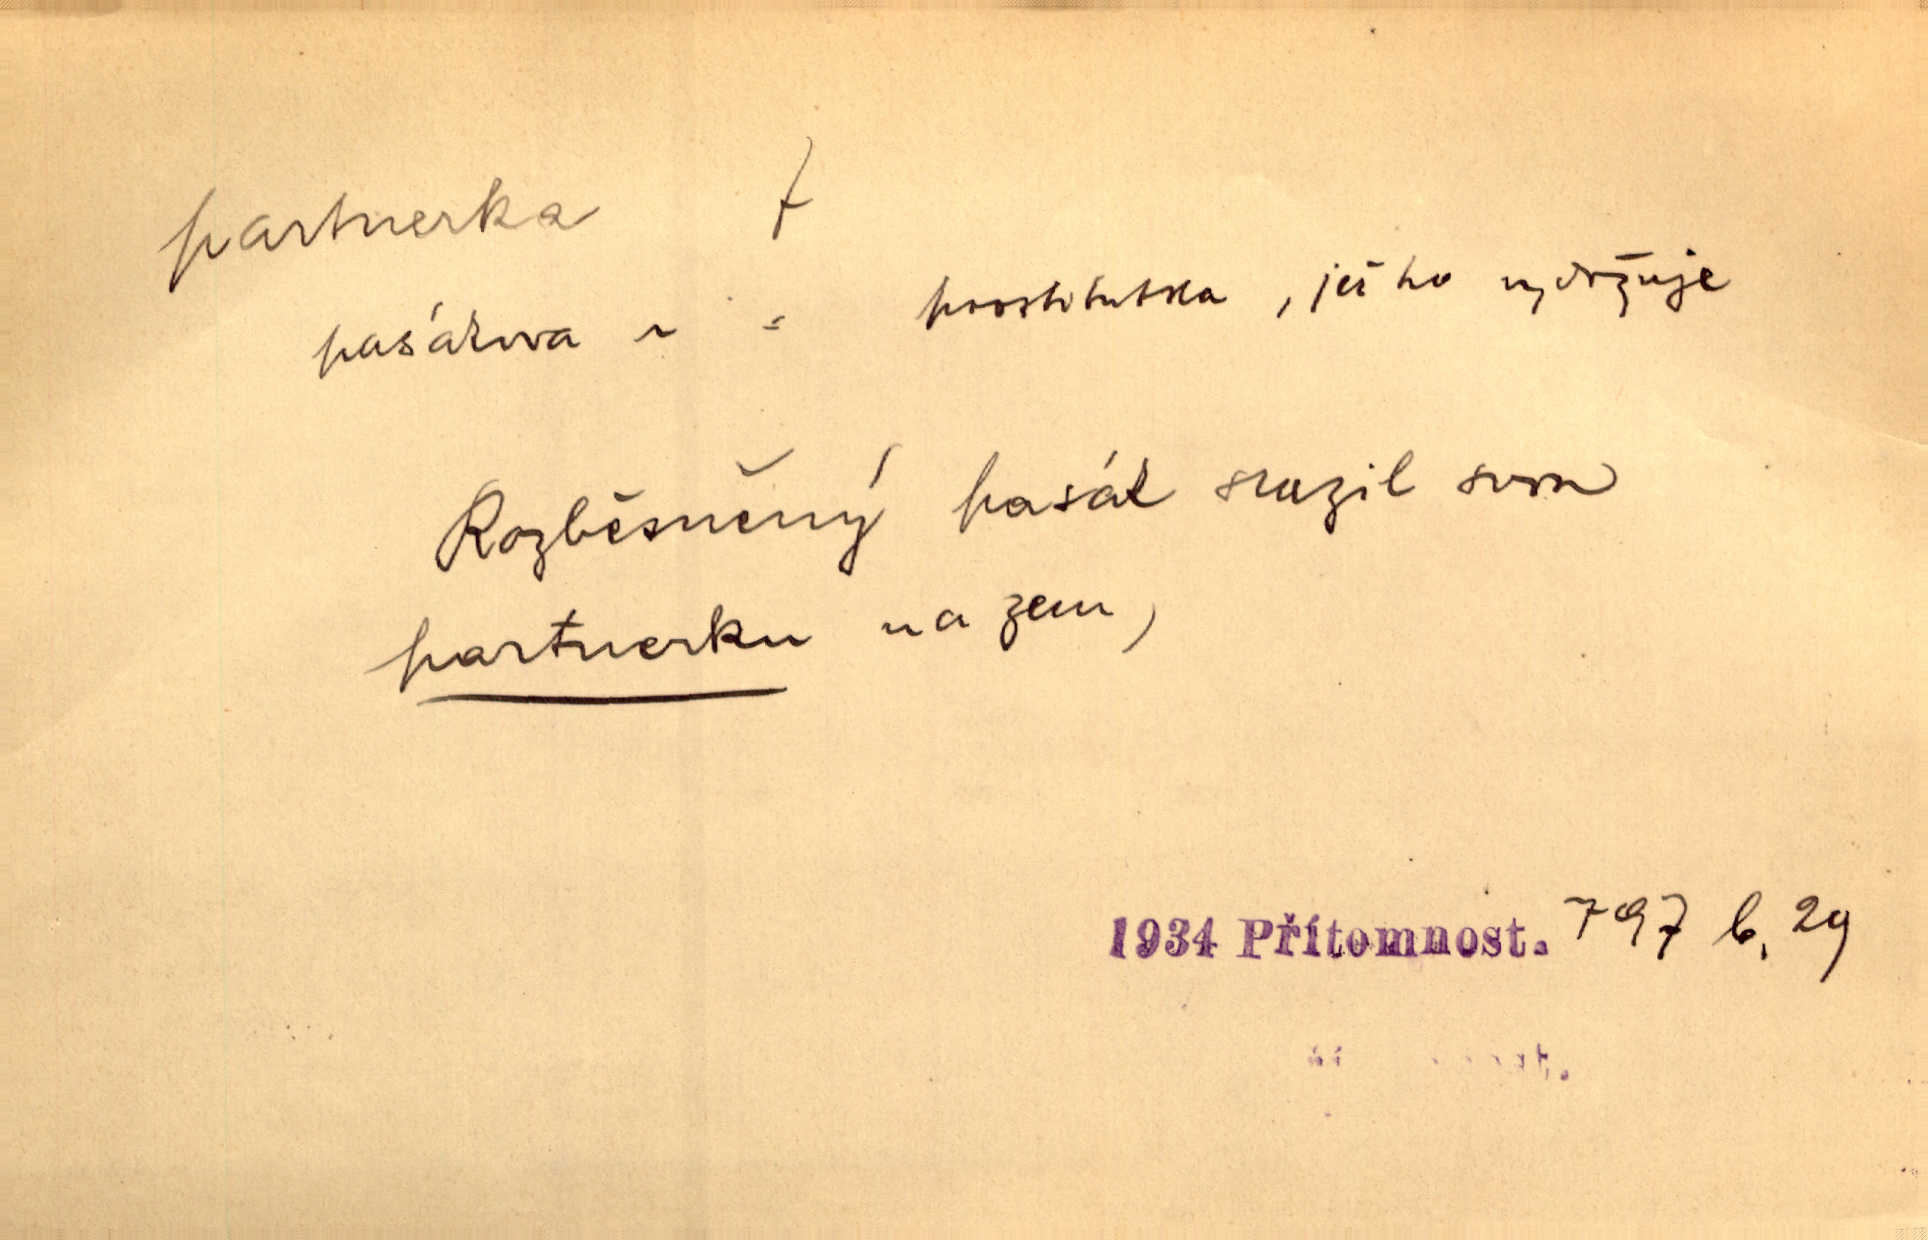 partnerka f
pasákova ~ = prostitutka, jež ho vydržuje
Rozběsněný pasák srazil svou
partnerku na zem,
1934 Přítomnost. 797 b, 29